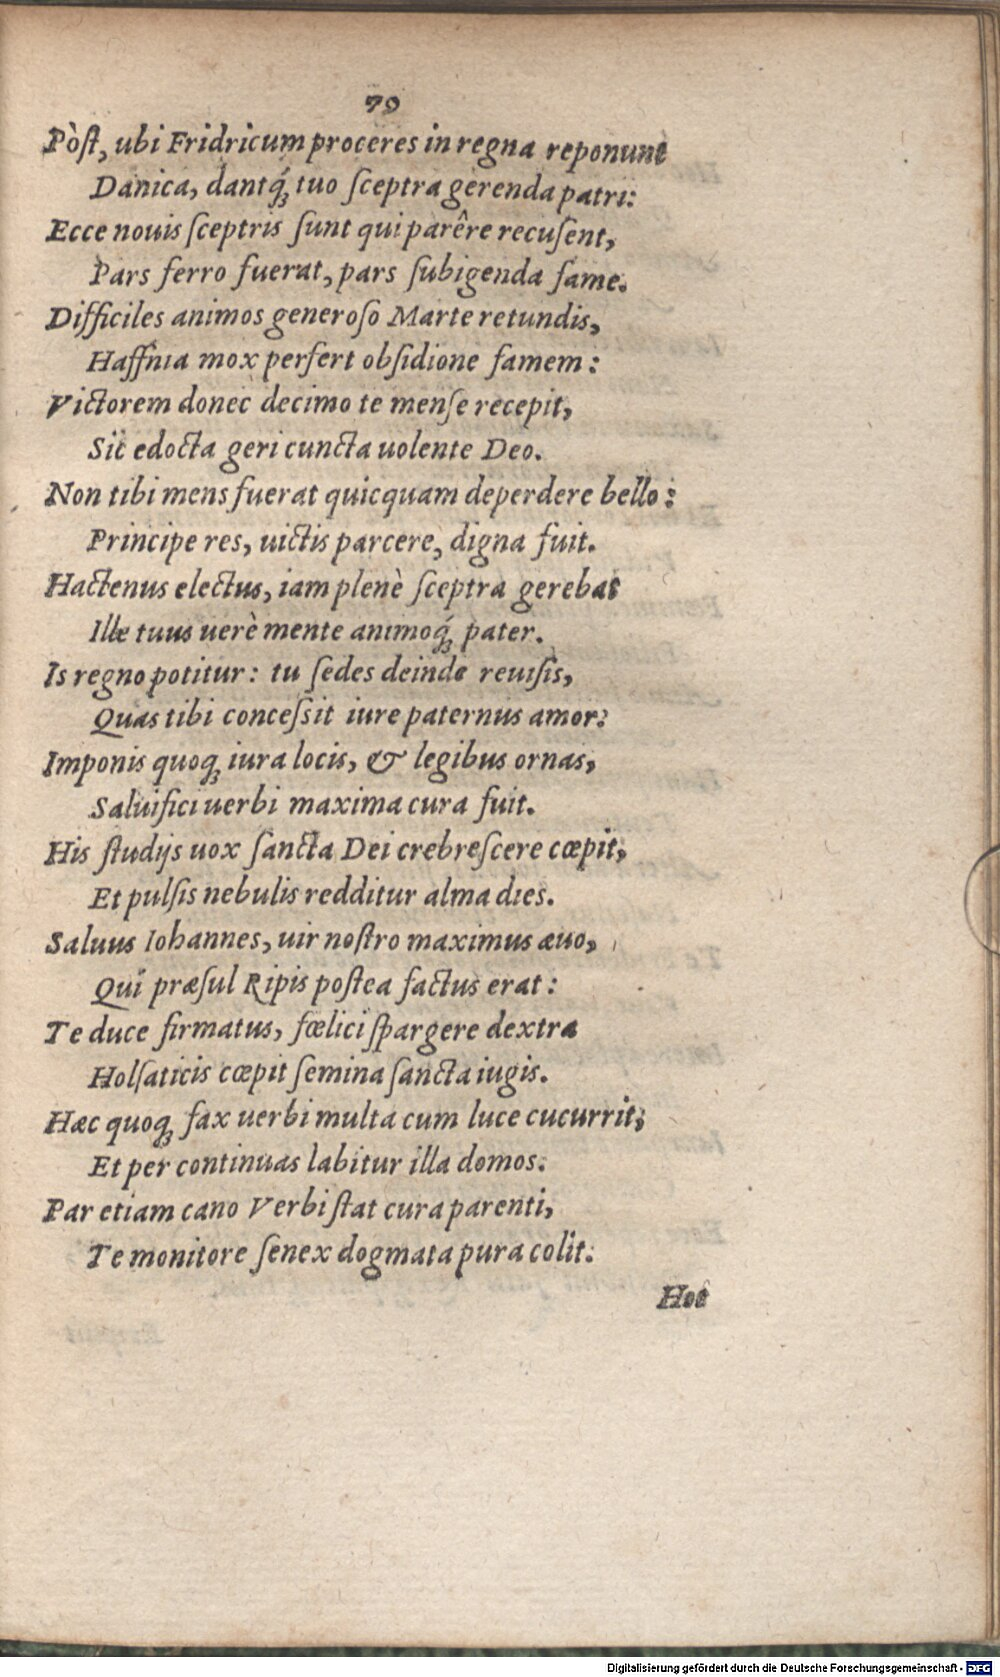 79
Pòſt, ubi Fridricum proceres in regna reponunt
Danica, dantq́ꝫ tuo ſceptra gerenda patri:
Ecce nouis ſceptris ſunt qui parêre recuſent,
Pars ferro fuerat, pars ſubigenda fame.
Difficiles animos generoſo Marte retundis,
Haffnia mox perfert obſidione famem:
Victorem donec decimo te menſe recepit,
Sic edocta geri cuncta uolente Deo.
Non tibi mens fuerat quicquam deperdere bello:
Principe res, uictis parcere, digna fuit.
Hactenus electus, iam plenè ſceptra gerebat
Ille tuus uerè mente animoq́ꝫ pater.
Is regno potitur: tu ſedes deinde reuiſis,
Quas tibi conceſsit iure paternus amor:
Imponis quoqꝫ iura locis, & legibus ornas,
Saluifici uerbi maxima cura fuit.
His ſtudijs uox ſancta Dei crebreſcere cœpit,
Et pulſis nebulis redditur alma dies.
Saluus Iohannes, uir noſtro maximus æuo,
Qui præſul Ripis poſtea factus erat:
Te duce firmatus, fœlici ſpargere dextra
Holſaticis cœpit ſemina ſancta iugis.
Hæc quoqꝫ fax uerbi multa cum luce cucurrit,
Et per continuas labitur illa domos.
Par etiam cano Verbi ſtat cura parenti,
Te monitore ſenex dogmata pura colit.
Hoc
Digitalisierung gefördert durch die Deutsche Forschungsgemeinschaft - DFG